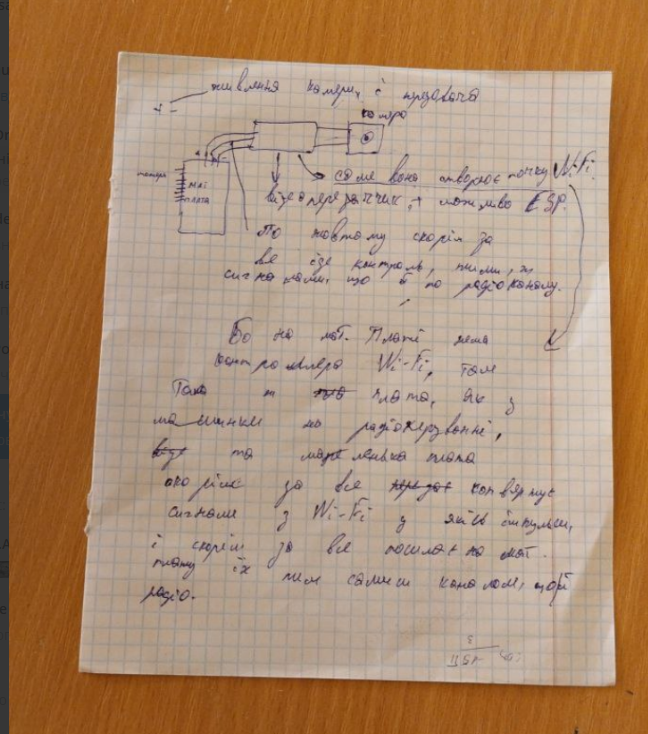 живлення камери, і передавача
+ -
камера
саме вона створює точку Wi-Fi.
мат
плата
відеопередатчик, можливо ESP.
По жовтому скоріш за
все іде контроль, тими ж
сигналами, що й по радіоканалу.
Бо на мат. Платі нема
контролера Wi-Fi, там
Така ж плата, як у
машинки на радіокеруванні,
та маленька плата
скоріше за все конвертує
сигнали з Wi-Fi у якісь імпульси,
і скоріш за все посилає на мат.
плату їх тим самим каналом, що й
радіо.